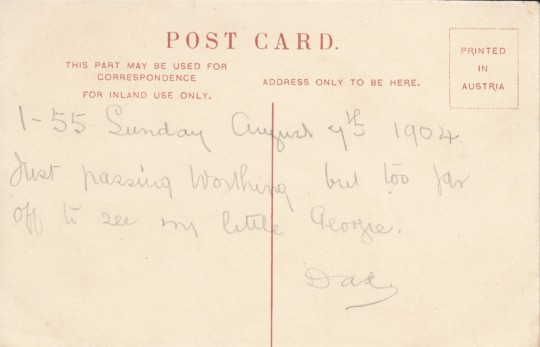 POST CARD.
THIS PART MAY BE USED FOR
CORRESPONDENCE
FOR INLAND USE ONLY.
ADDRESS ONLY TO BE HERE.
PRINTED
IN
AUSTRIA
1-55 Sunday August 7th 1904.
Just passing Worthing but too far
off to see my little Georgie.
Dad